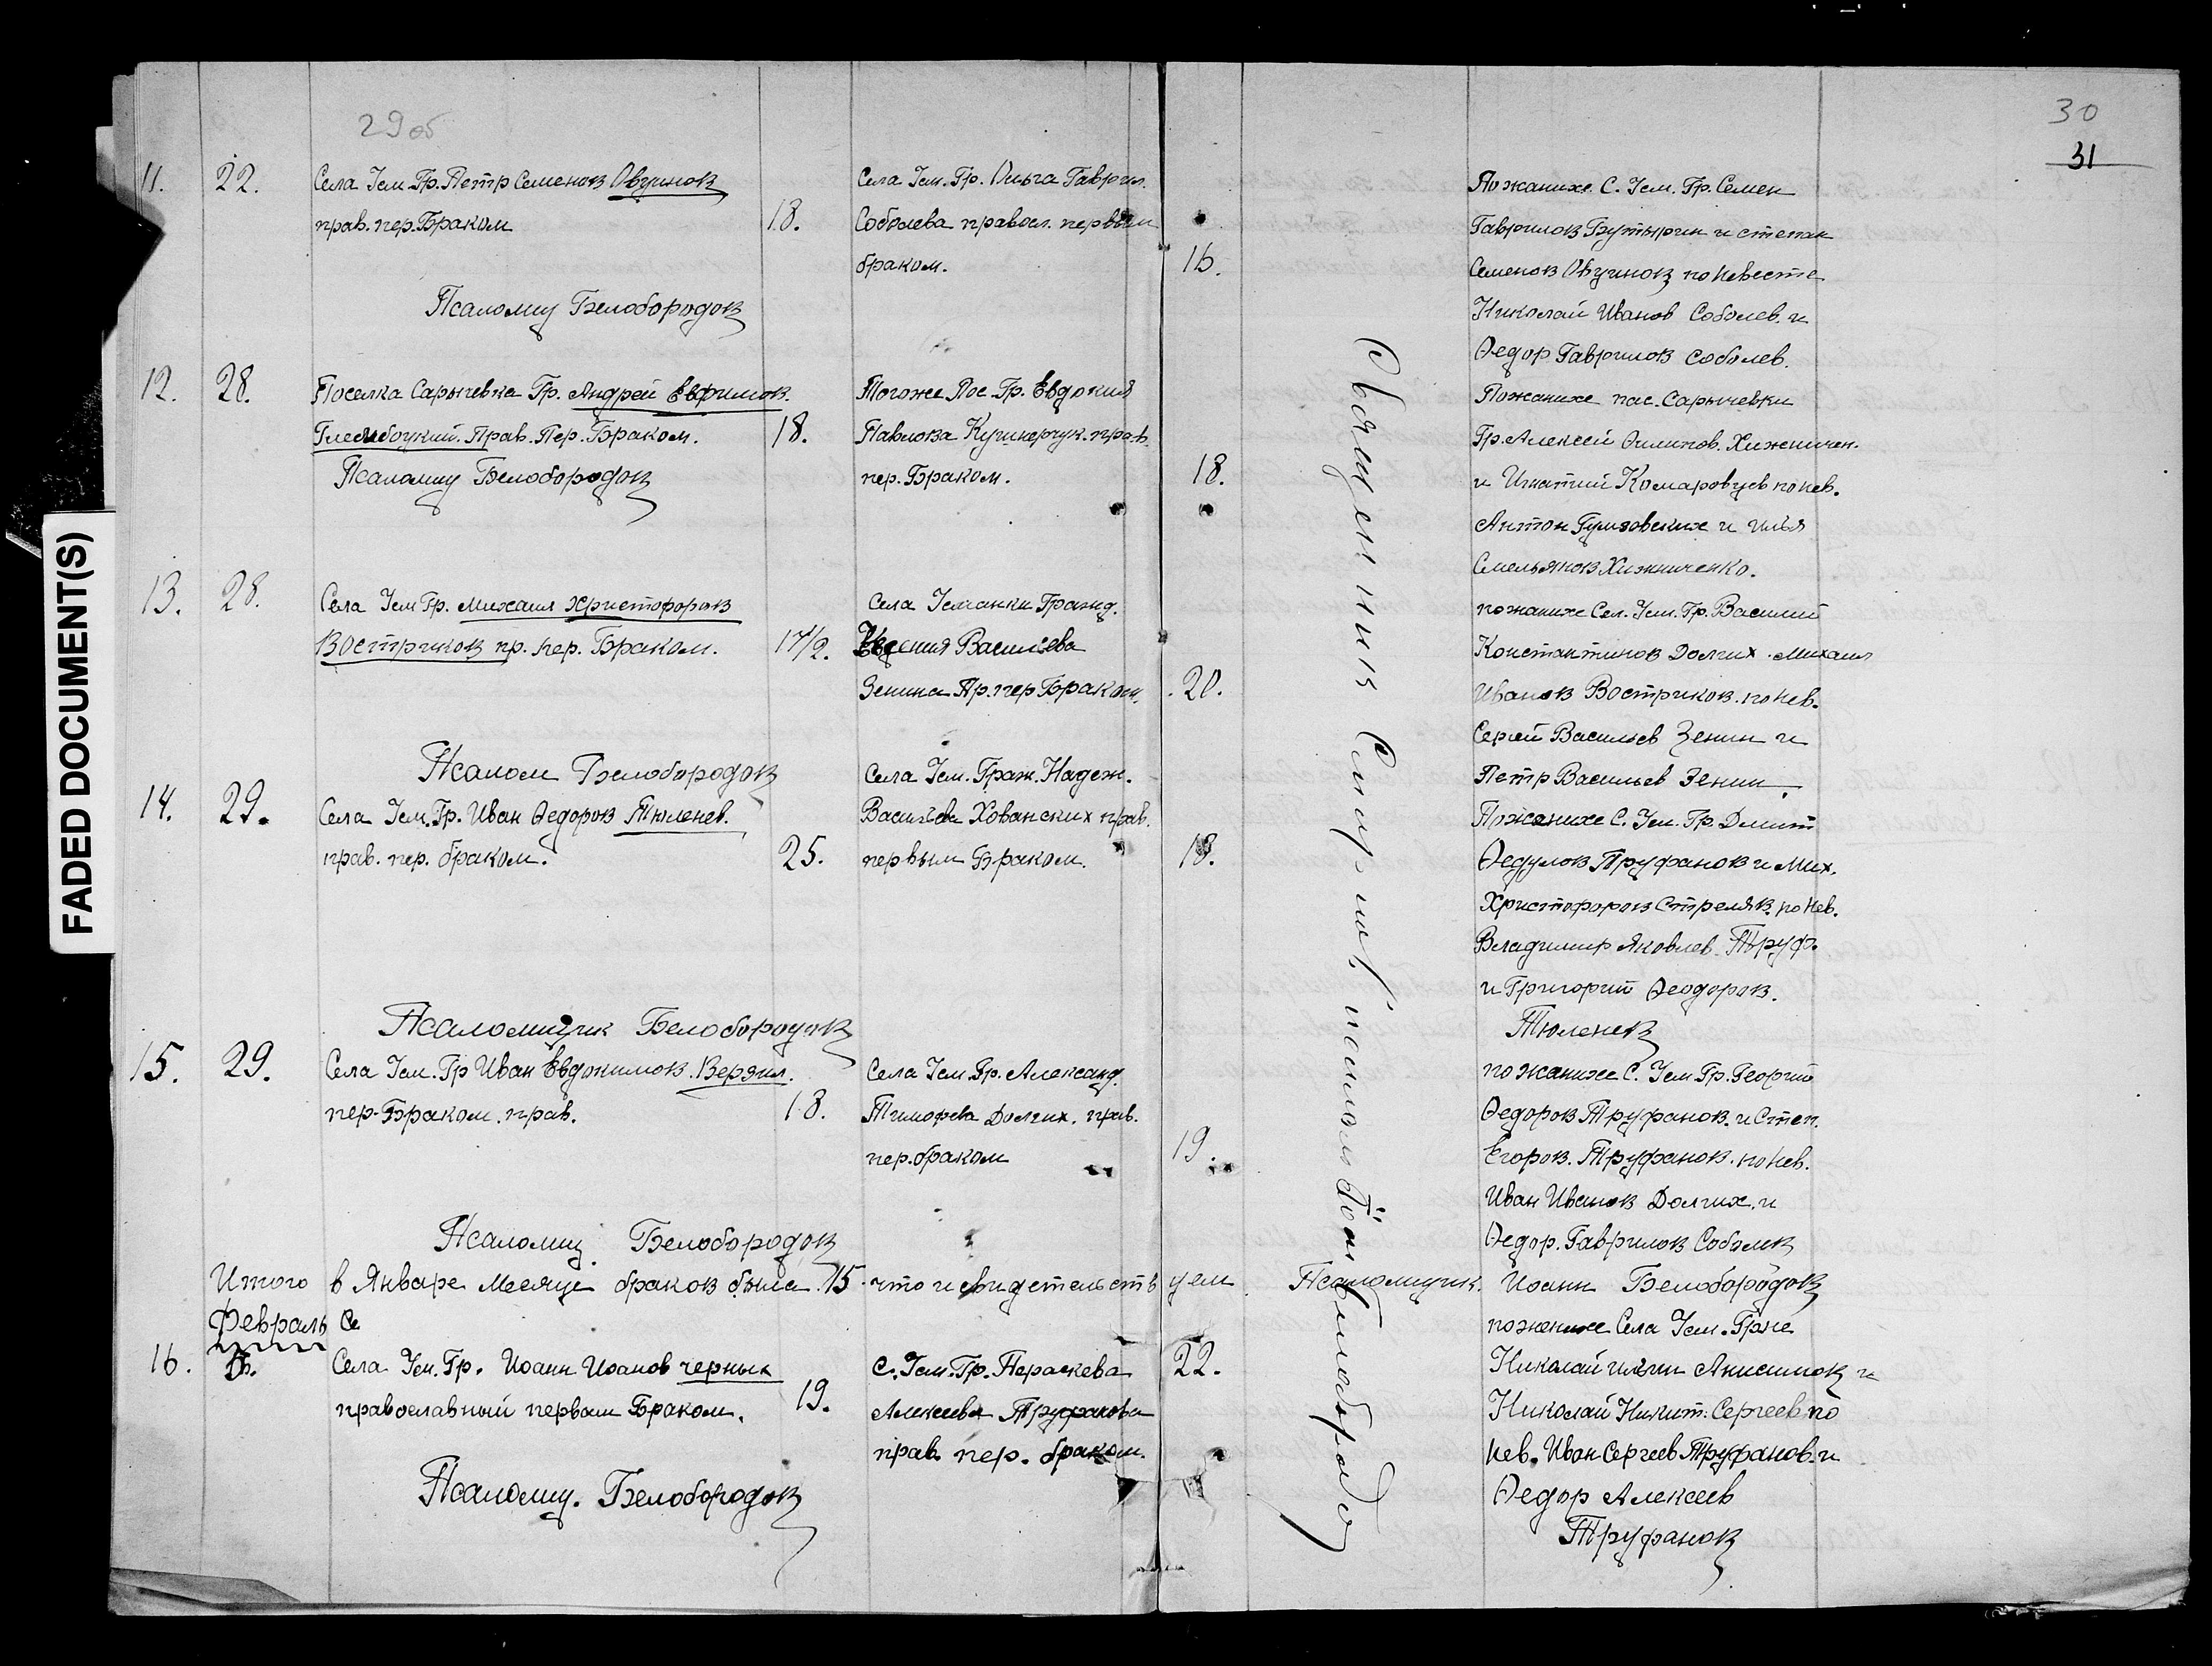 29 об
30
31
FADED DOCUMENT(S)
11. 22. Села Усм. Гр. Петр Семенов Овчинов
прав. пер. Браком
18.
Села Усм. Гр. Ольга Гаврил.
Соболева правосл. первым
браком.
16.
По жанихе. С. Усм. Гр. Семен
Гаврилов Бутырин и степан
Семенов Овчинов по невесте
Николай Иванов Соболев. и
Ѳедор Гаврилов соболев.
Псаломщ Белобородов
12. 28. Поселка Сарычевка Гр. Андрей Евфимов.
Прав. Пер. Браком.
18.
Тогоже Пос. Гр. Евдокия
Павлова прав.
пер. Браком.
18.
По жанихе пос. Сарычевки
Гр. Алексей Филипов.
и Игнатий Комаровцев по нев.
Антон и илья
Емельянов Хижниченко.
Псаломщ Белобородов
13. 28. Села Усм Гр. михаил христофоров
Востриков пр. пер. Браком.
17 1/2.
Села Усманки Гражд.
Васильева
Зенина Пр. пер Браком.
20.
по жанихе Сел. Усм. Гр. Василий
Константинов Долгих. Михаил
Иванов Востриков. по нев.
Сергей Васильев Зенин и
Петр Васильев Зенин.
Псалом Белобородов
14. 29. Села Усм. Гр. Иван Ѳедоров Тюленев.
прав. пер. браком.
25.
Села Усм. Граж. Надеж.
Васильева Хованских прав.
первым Браком.
18.
По жанихе С. Усм. Гр. Дмит
Ѳедулов Труфанов и Мих.
Христофоров Стреляв. по нев.
Владимир Яковлев Труф.
и Григорий Ѳеодоров.
Тюленев
Псаломщик Белобородов
15. 29. Села Усм. Гр Иван Евдокимов.
пер. Браком. прав.
18.
Села Усм. Гр. Александ.
Тимофева Долгих. прав.
пер. браком
19.
по жанихе С. Усм. Гр. Георгий
Ѳедоров Труфанов. и Степ.
Егоров. Труфанов. по нев.
Иван Иванов Долгих. и
Ѳедор. Гаврилов Соболев
Псаломщ. Белобородов
Итого в Январе Месяце браков было 15. что и свидетельствуем Псаломщик. Иоанн Белобородов
Февраль Се
16. Села Усм. Гр. Иоанн Иоанов черных
православный первым Браком.
19.
С. Усм. Гр. Параскева
Алексеева Труфанова
прав. пер. браком.
22.
по женихе Села Усм. Гр-не
Николай Анисимов и
Николай Никит. Сергеев по
нев. Иван Сергеев Труфанов. и
Ѳедор Алексеев
Труфанов
Псаломщ. Белобородов
Священник